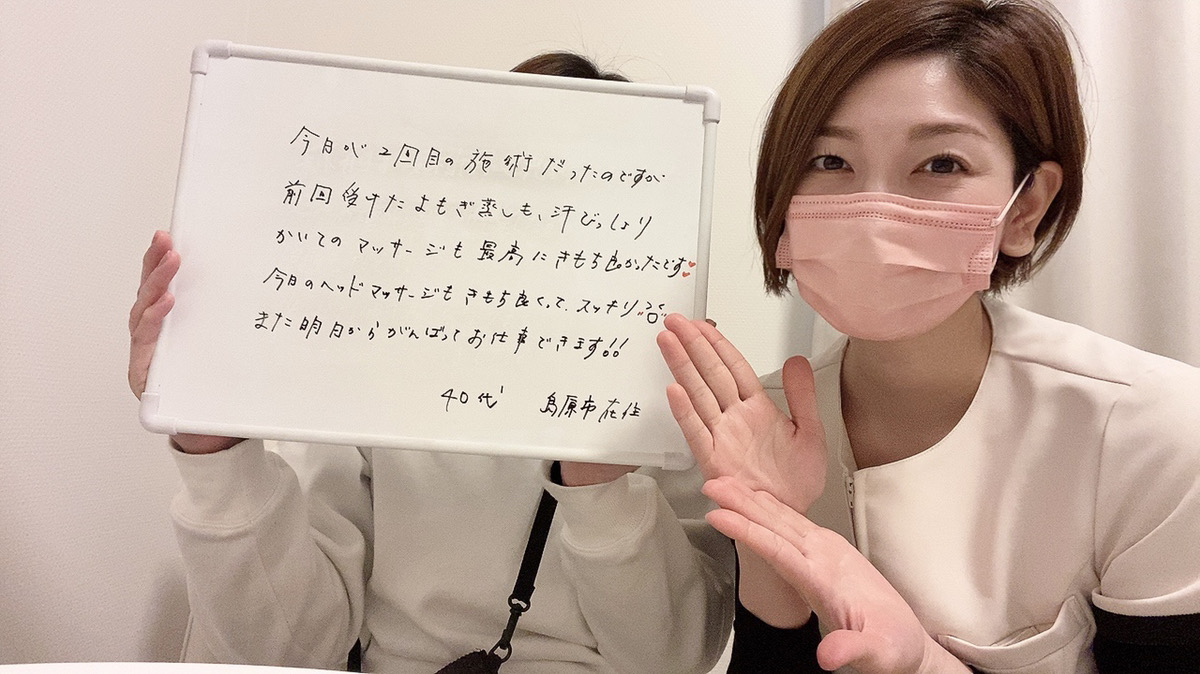 今日が2回目の施術だったのですが
前回受けたよもぎ蒸しも、汗びっしょり
かいてのマッサージも最高にきもち良かったです
今日のヘッドマッサージもきもち良くって、スッキリ
また明日からがんばってお仕事できます!!
40代 島原市在住